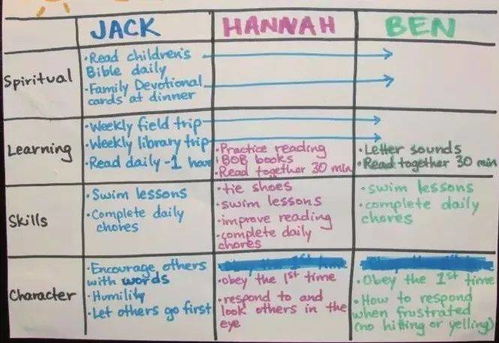 JACK HANNAH BEN
Spiritual
• Read children's
Bible daily
• Family Devotional
cards at dinner
Learning
• Weekly field trip
• Weekly library trip
• Read daily - 1 hour
• Practice reading
BOB books
• Read together 30 min
• Letter sounds
• Read together 30 min
Skills
• Swim lessons
• Complete daily
chores
• tie shoes
• swim lessons
• improve reading
• complete daily
chores
• swim lessons
• complete daily
chores
Character
• Encourage others
with words
• Humility
• Let others go first
• obey the 1st time
• respond to and
look others in the
eye
• Obey the 1st time
• How to respond
when frustrated
(no hitting or yelling)